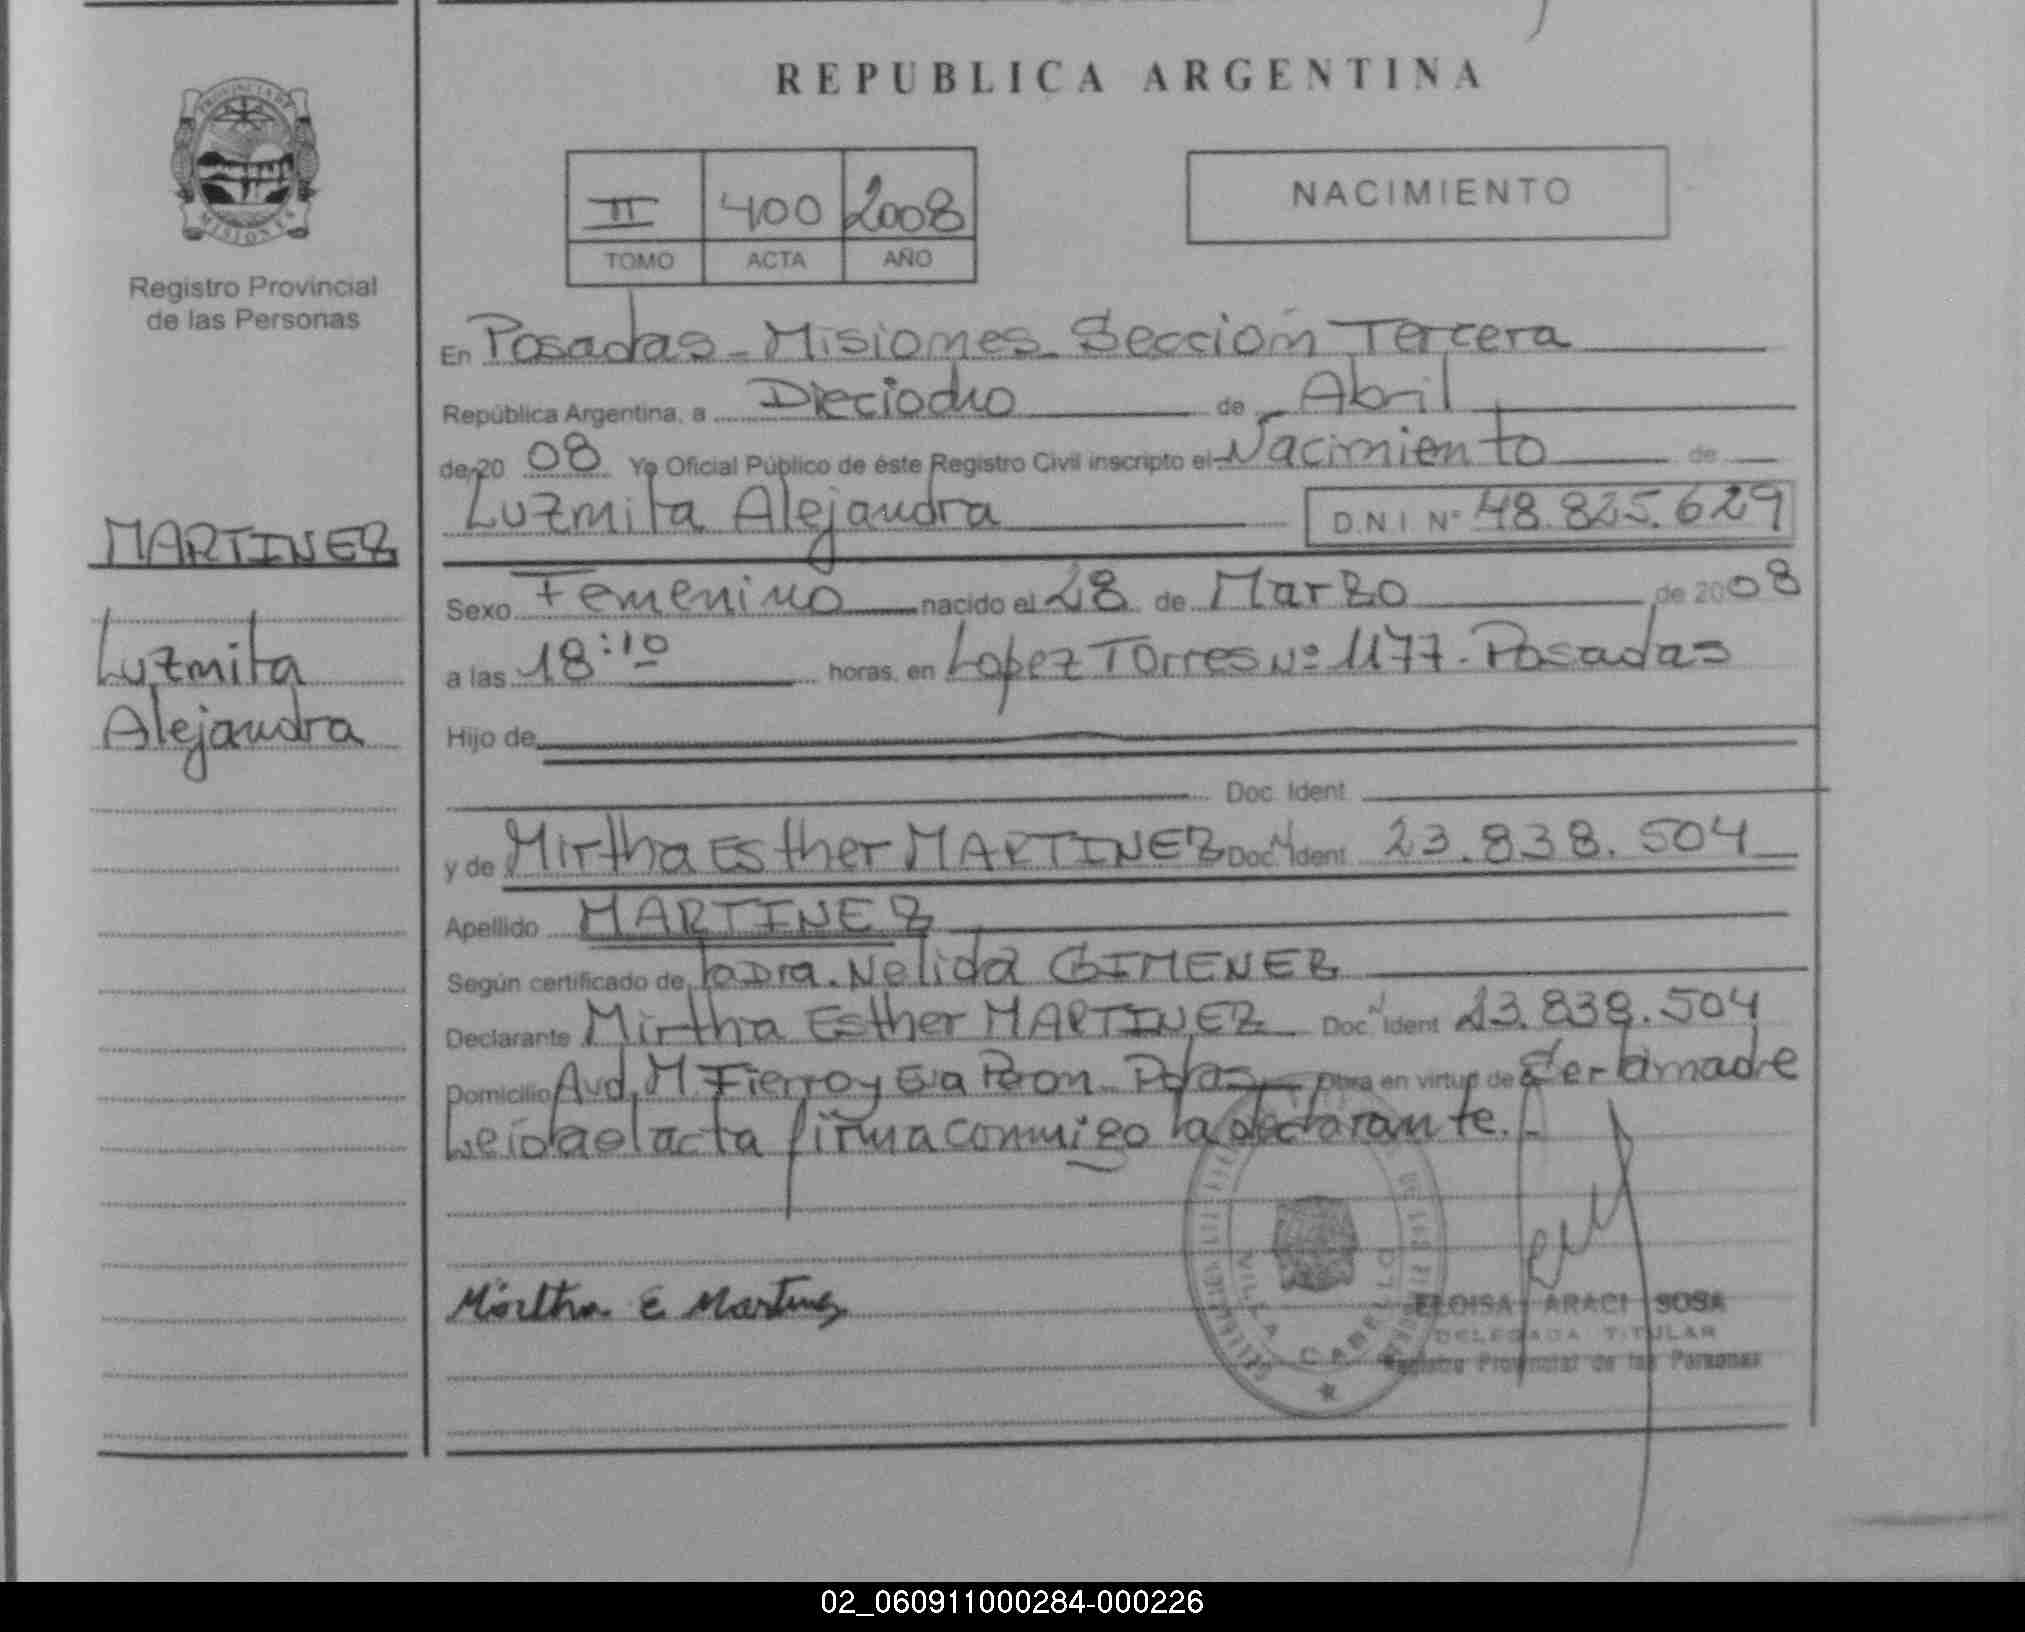 REPUBLICA ARGENTINA
PROVINCIA DE
MISIONES
Registro Provincial
de las Personas
II 400 2008
TOMO ACTA AÑO
NACIMIENTO
En Posadas - Misiones - Sección Tercera
República Argentina, a Dieciocho de Abril
de 20 08 Yo Oficial Público de éste Registro Civil inscripto el Nacimiento de
Luzmila Alejandra D.N.I Nº 48.825.629
MARTINEZ
Luzmila
Alejandra
Sexo Femenino nacido el 28 de Marzo de 2008
a las 18:10 horas, en Lopez Torres Nº 1177 - Posadas
Hijo de
Doc. Ident.
y de Mirtha Esther MARTINEZ Doc. Ident. 23.838.504
Apellido MARTINEZ
Según certificado de la Dra. Nelida GIMENEZ
Declarante Mirtha Esther MARTINEZ Doc. Ident 23.838.504
Domicilio Avd. M. Fierro y Eva Peron - Pdas Obra en virtud de Ser la madre
Leida el acta firma conmigo la declarante.-
Mirtha E Martinez
VILLA CABELLO
ELOISA ARACI SOSA
DELEGADA TITULAR
Registro Provincial de las Personas
02_060911000284-000226